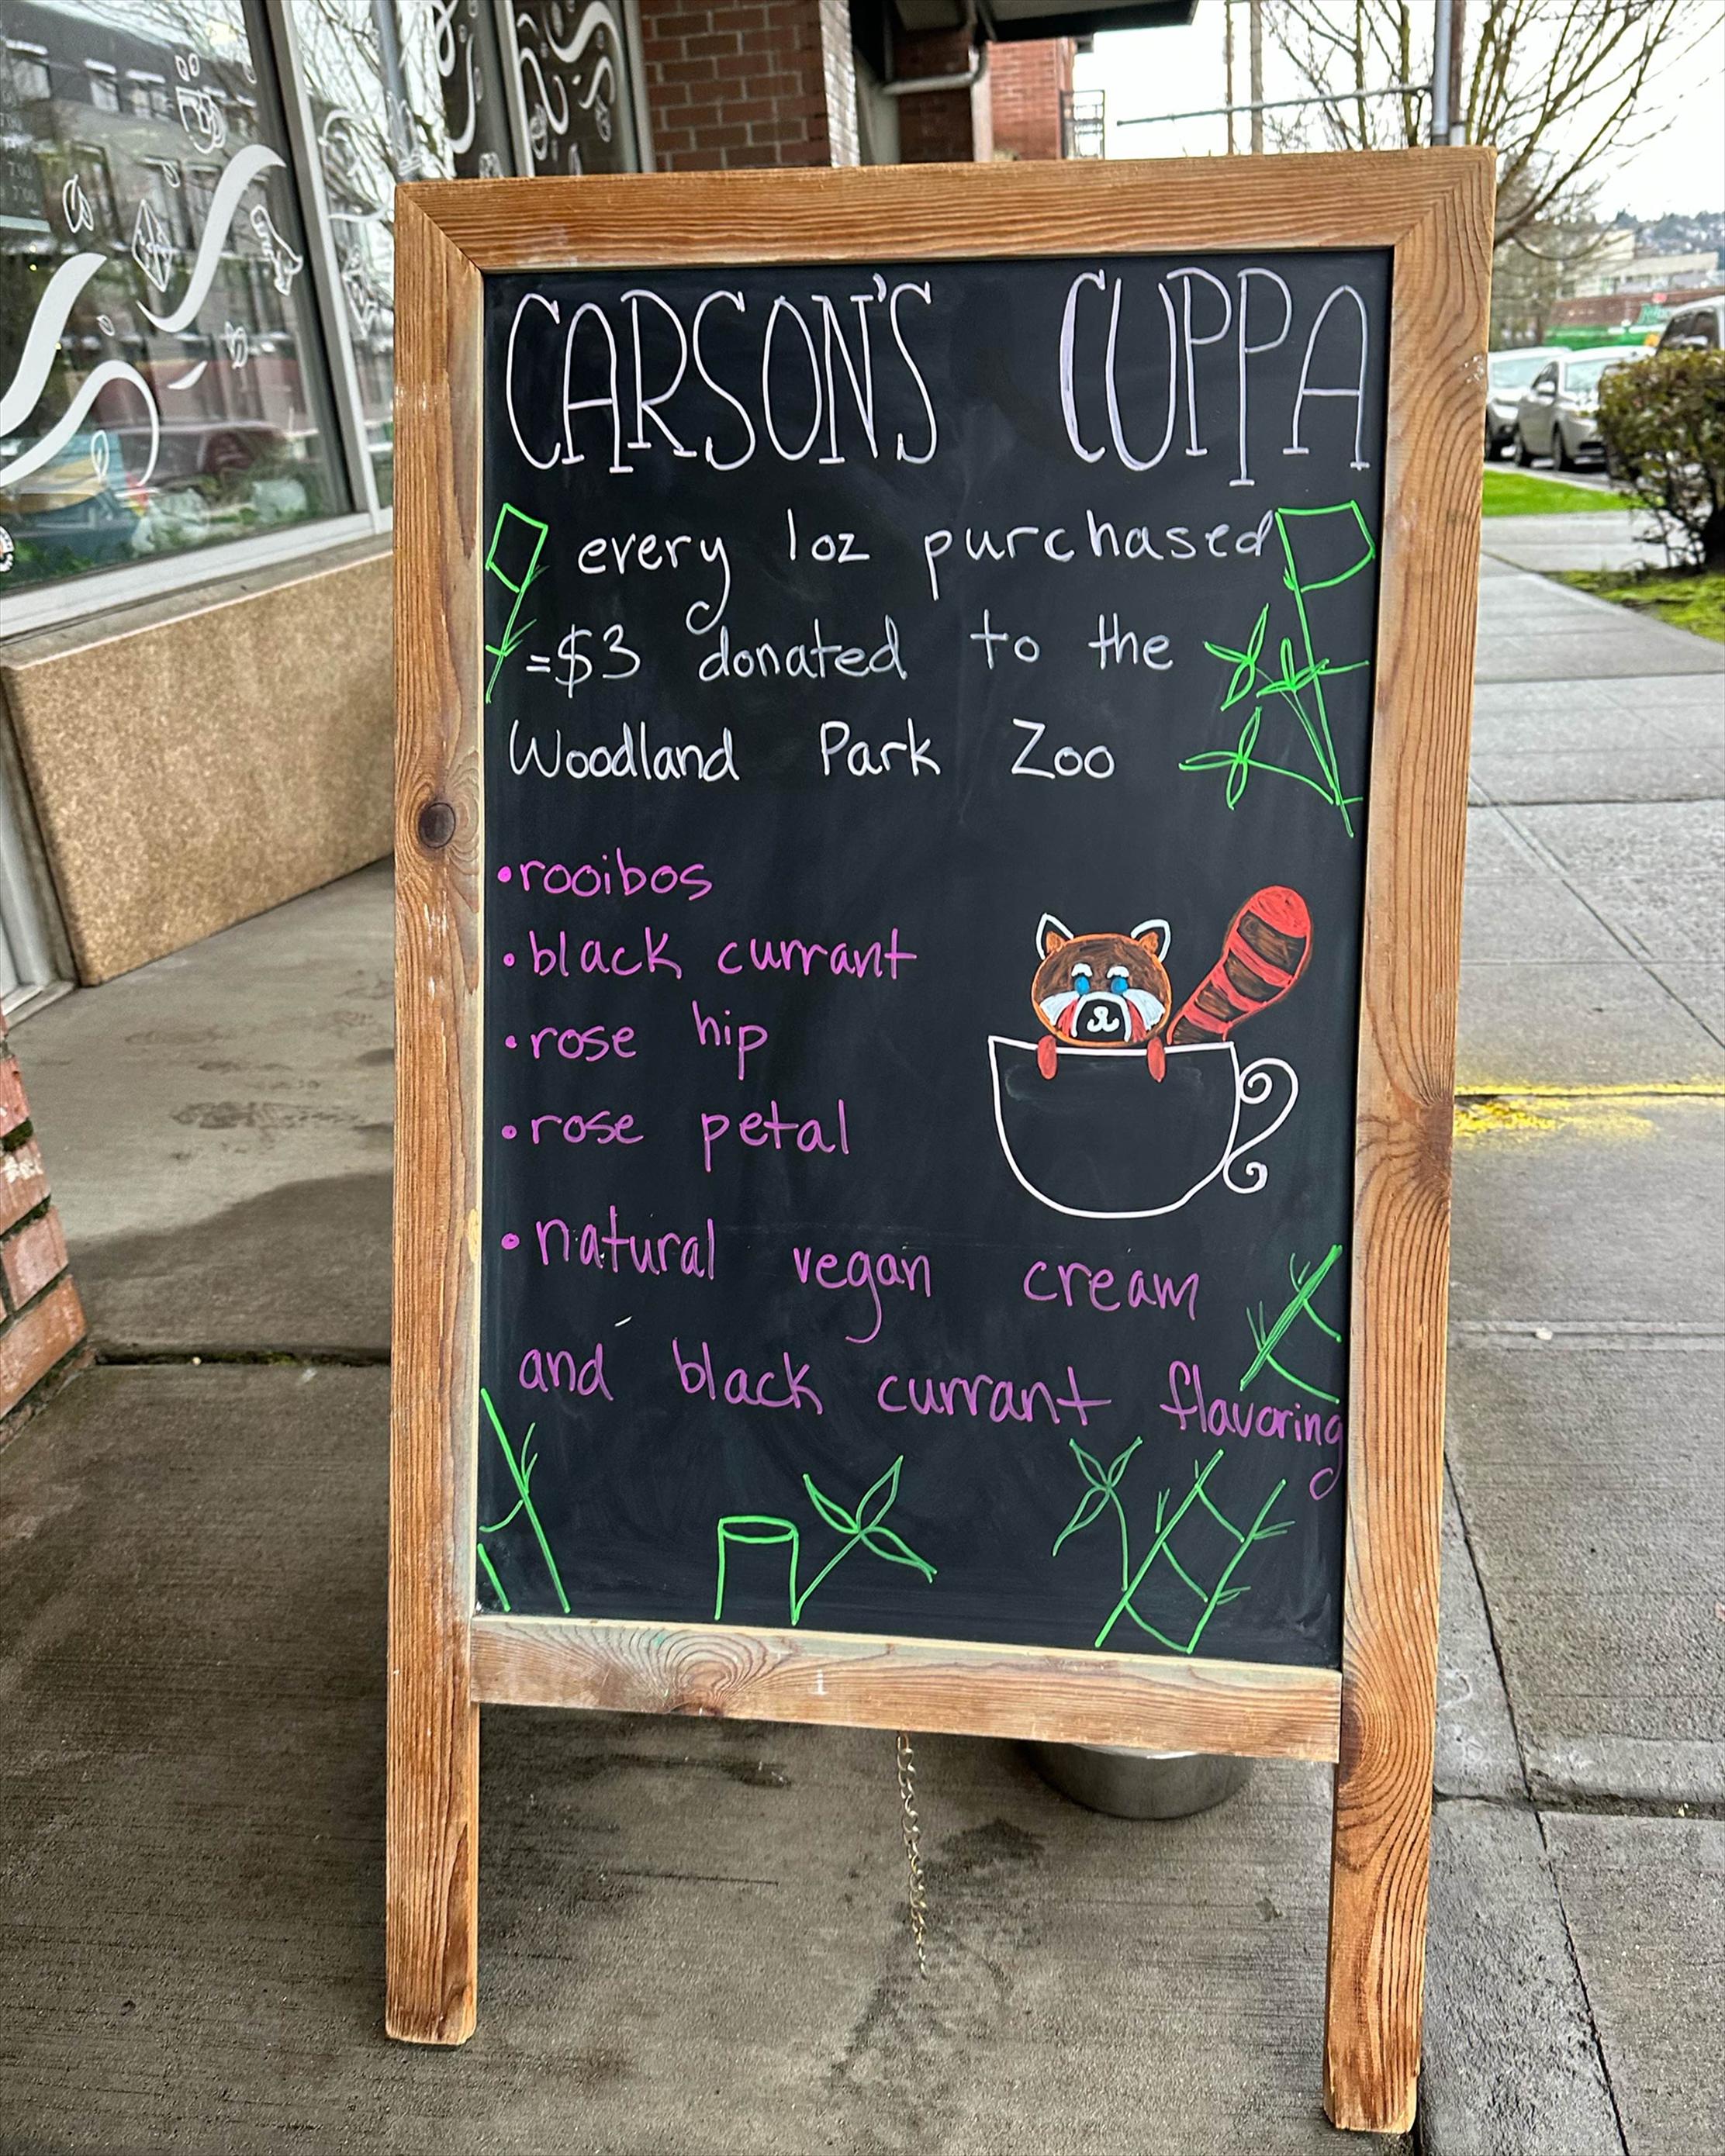 CARSON'S CUPPA
every 1oz purchased
=$3 donated to the
Woodland Park Zoo
•rooibos
•black currant
•rose hip
•rose petal
•natural vegan cream
and black currant flavoring